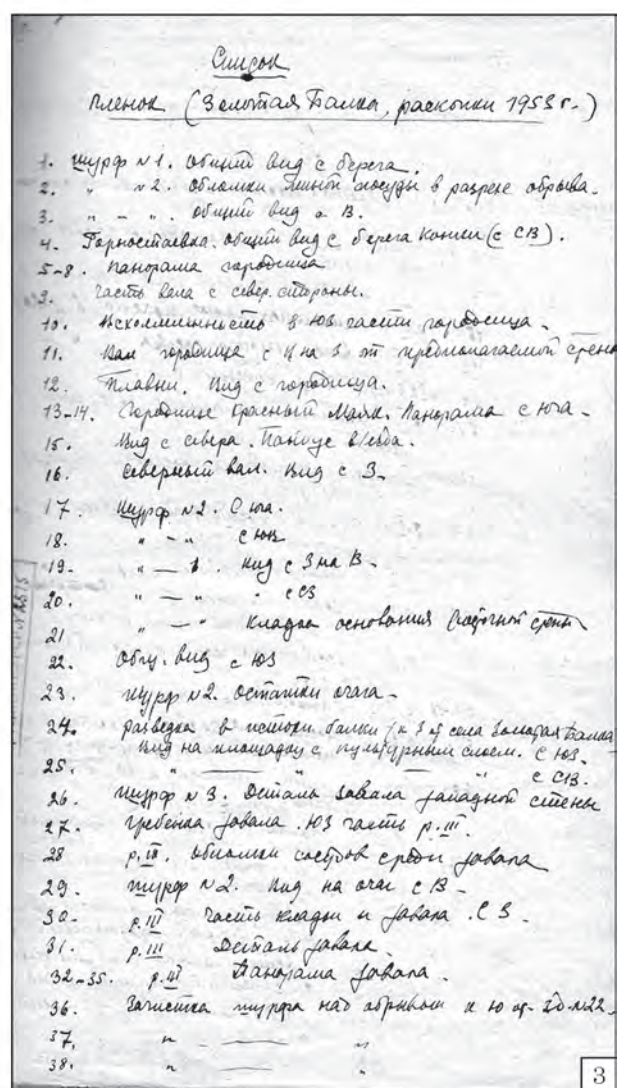 Список
пленок (Золотая Балка, раскопки 1953 г.)
1. шурф №1. Общий вид с берега.
2. " №2. Обломки посуды в разрезе обрыва.
3. " – " . Общий вид с В.
4. Горностаевка. Общий вид с берега (с СВ).
5-8. Панорама городища
9. Часть вала с север. стороны.
10. Всхолмленность в ЮЗ части городища.
11. Вал городища с на З от предполагаемой стены
12. Плавни. Вид с городища.
13-14. Городище Красный Маяк. Панорама с юга.
15. Вид с севера. въезда.
16. Северный вал. Вид с З.
17 Шурф №2. С юга.
18. " – " с ЮВ
19. " — " . Вид с З на В.
20. " — " " с СЗ
21 " — " Кладка основания стены
22. Общ. вид с ЮЗ
23. шурф №2. Остатки очага.
24. разведка в истоки балки (к З от села Золотая Балка
Вид на площадку с культурным слоем. С ЮЗ.
25. " — " — " с СВ.
26. шурф №3. Деталь завала западной стены
27. Гребенка завала. ЮЗ часть р. III
28 р. III. Обломки среди завала
29. шурф №2. Вид на очаг с В.
30. р. III Часть кладки и завала. С З.
31. р. III Деталь завала
32-35. р. III Панорама завала.
36. Зачистка шурфа над обрывом к Ю от зд. №22.
37. " — "
38. " — "
3